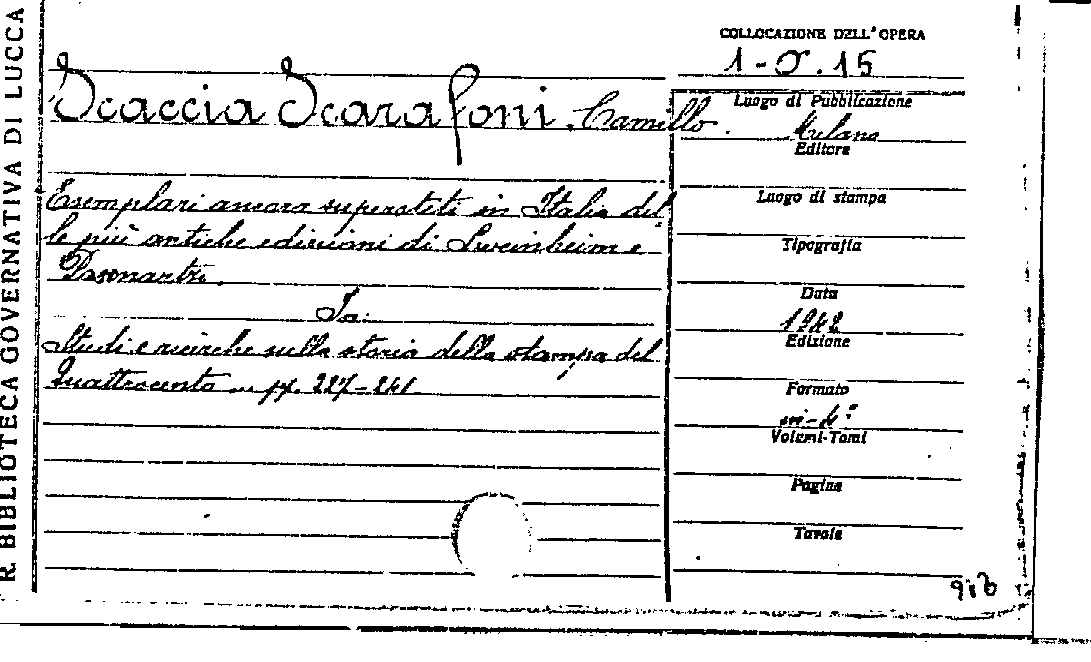 R. BIBLIOTECA GOVERNATIVA DI LUCCA
COLLOCAZIONE DELL'OPERA
1-O.15
Scaccia Scarafoni Camillo.
Esemplari ancora superstiti in Italia del
le più antiche edizioni di Sweinheim e
Pannartz.
In:
Studi e ricerche sulla storia della stampa del
Quattrocento pp. 227-241
Luogo di Pubblicazione
Milano
Editore
Luogo di stampa
Tipografia
Data
1942
Edizione
Formato
in-4°
Volumi-Tomi
Pagine
Tavole